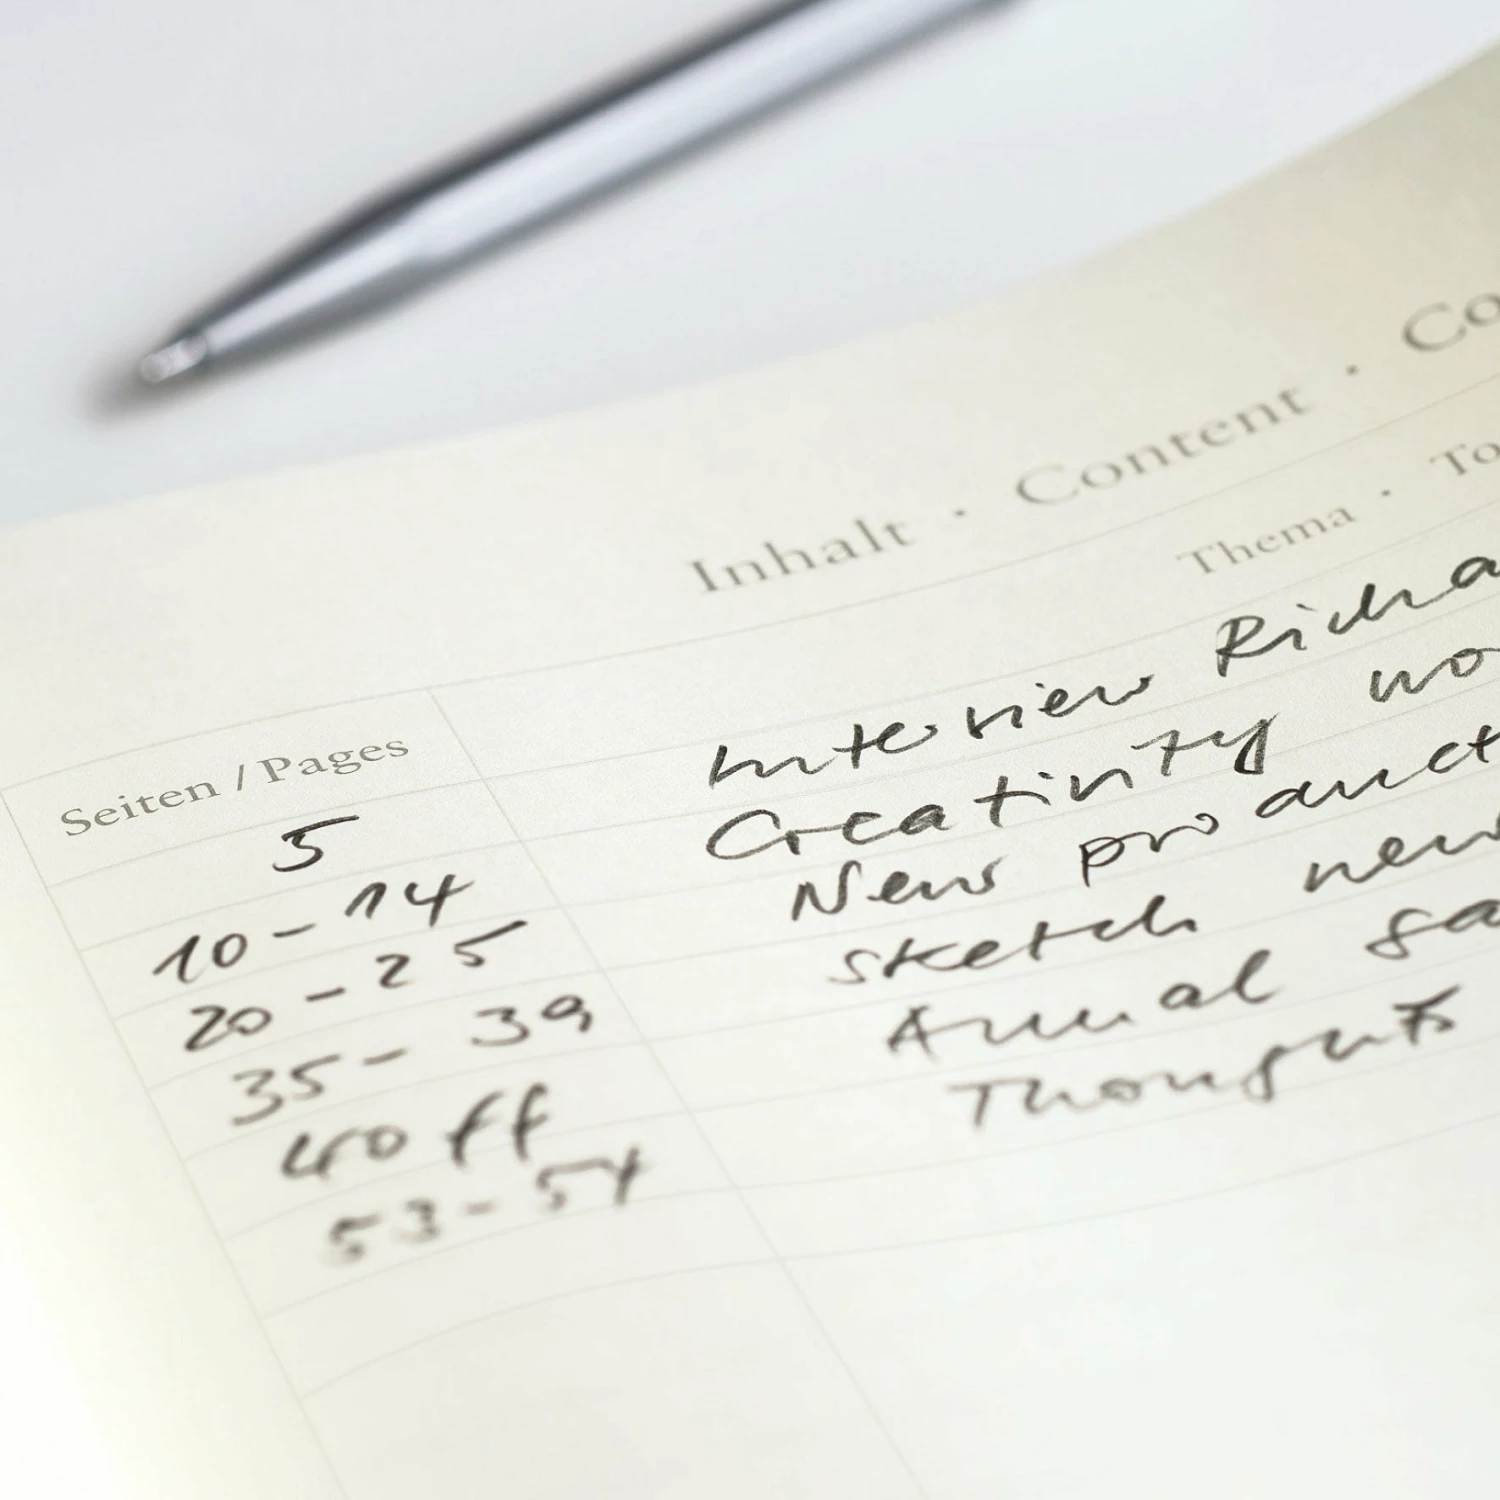 Inhalt · Content · Co
Seiten / Pages Thema · To
5 Interview Richa
10 - 14 Creativity wo
20 - 25 New product
35 - 39 sketch new
40 ff Annual ga
53 - 54 Thoughts